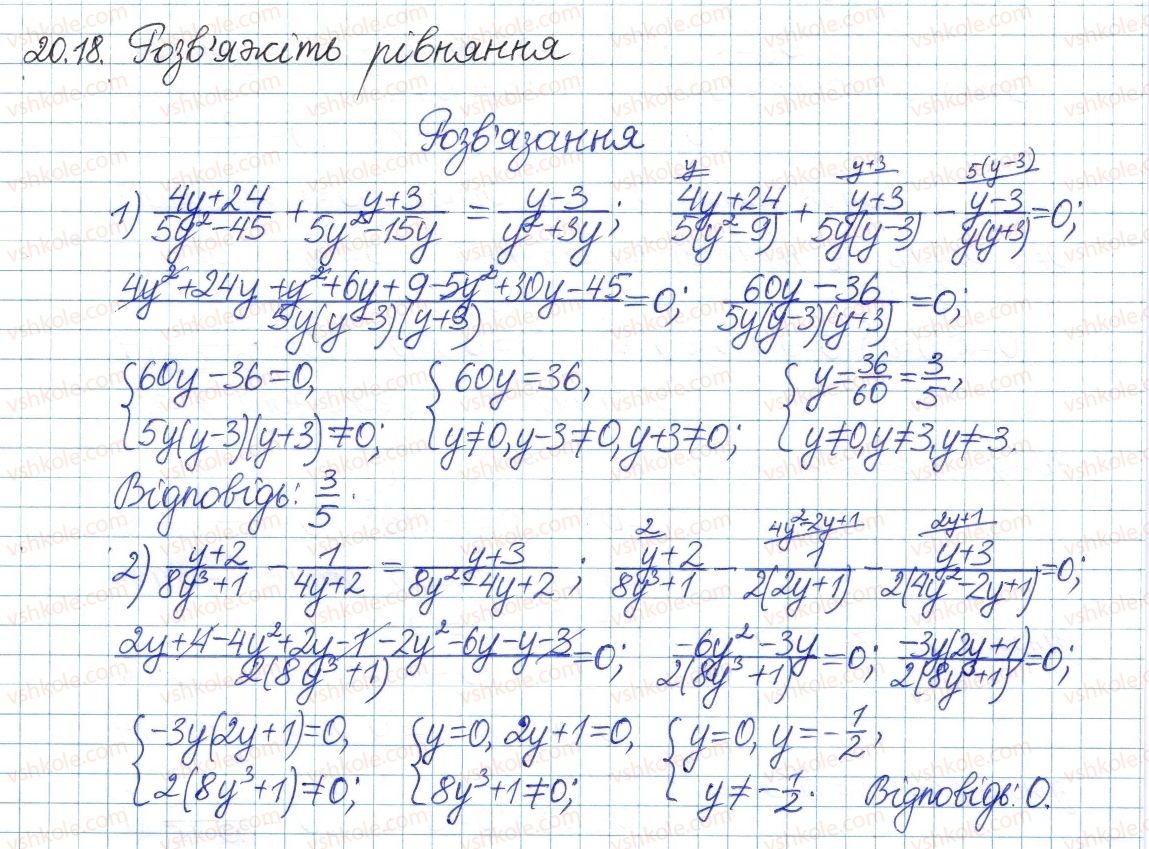 20.18. Розв'яжіть рівняння
Розв'язання
1) (4y+24)/(5y²-45) + (y+3)/(5y²-15y) = (y-3)/(y²+3y); (4y+24)/(5(y²-9)) (y) + (y+3)/(5y(y-3)) (y+3) - (y-3)/(y(y+3)) (5(y-3)) =0;
(4y²+24y+y²+6y+9-5y²+30y-45)/(5y(y-3)(y+3)) =0; (60y-36)/(5y(y-3)(y+3)) =0;
{60y-36=0, {60y=36, {y=36/60=3/5,
5y(y-3)(y+3)≠0; y≠0, y-3≠0, y+3≠0; y≠0, y≠3, y≠-3.
Відповідь: 3/5.
2) (y+2)/(8y³+1) - 1/(4y+2) = (y+3)/(8y²-4y+2); (y+2)/(8y³+1) (2) - 1/(2(2y+1)) (4y²-2y+1) - (y+3)/(2(4y²-2y+1)) (2y+1) =0;
(2y+4-4y²+2y-1-2y²-6y-y-3)/(2(8y³+1)) =0; (-6y²-3y)/(2(8y³+1)) =0; (-3y(2y+1))/(2(8y³+1)) =0;
{-3y(2y+1)=0, {y=0, 2y+1=0, {y=0, y=-1/2,
2(8y³+1)≠0; 8y³+1≠0; y≠-1/2. Відповідь: 0.